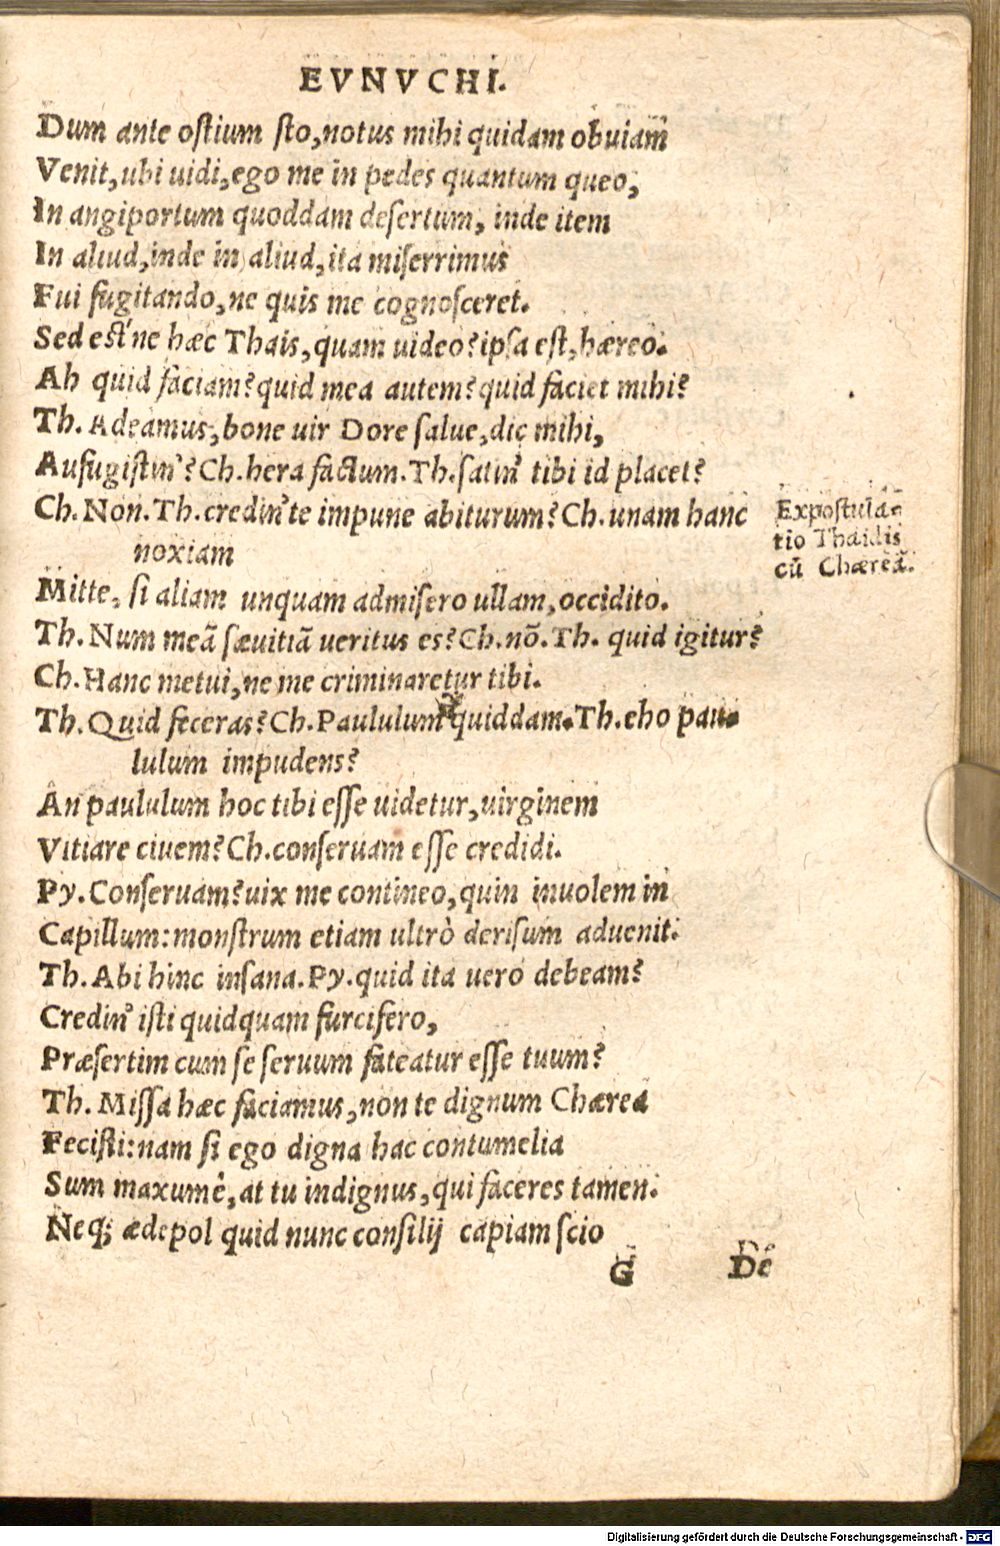 EVNVCHI.
Dum ante ostium sto, notus mihi quidam obuiam
Venit, ubi uidi, ego me in pedes quantum queo,
In angiportum quoddam desertum, inde item
In aliud, inde in aliud, ita miserrimus
Fui fugitando, ne quis me cognosceret.
Sed est'ne hæc Thais, quam uideo? ipsa est, hæreo.
Ah quid faciam? quid mea autem? quid faciet mihi?
Th. Adeamus, bone uir Dore salue, dic mihi,
Aufugistin'? Ch. hera factum. Th. satin' tibi id placet?
Ch. Non. Th. credin' te impune abiturum? Ch. unam hanc
noxiam
Expostula-
tio Thaidis
cū Chæreā.
Mitte, si aliam unquam admisero ullam, occidito.
Th. Num meā sæuitiā ueritus es? Ch. nō. Th. quid igitur?
Ch. Hanc metui, ne me criminaretur tibi.
Th. Quid feceras? Ch. Paululum quiddam. Th. eho pau-
lulum impudens?
An paululum hoc tibi esse uidetur, uirginem
Vitiare ciuem? Ch. conseruam esse credidi.
Py. Conseruam? uix me contineo, quin inuolem in
Capillum: monstrum etiam ultrò derisum aduenit.
Th. Abi hinc insana. Py. quid ita uero debeam?
Credin' isti quidquam furcifero,
Præsertim cum se seruum fateatur esse tuum?
Th. Missa hæc faciamus, non te dignum Chærea
Fecisti: nam si ego digna hac contumelia
Sum maxumè, at tu indignus, qui faceres tamen.
Neq; ædepol quid nunc consilij capiam scio
G De
Digitalisierung gefördert durch die Deutsche Forschungsgemeinschaft - DFG